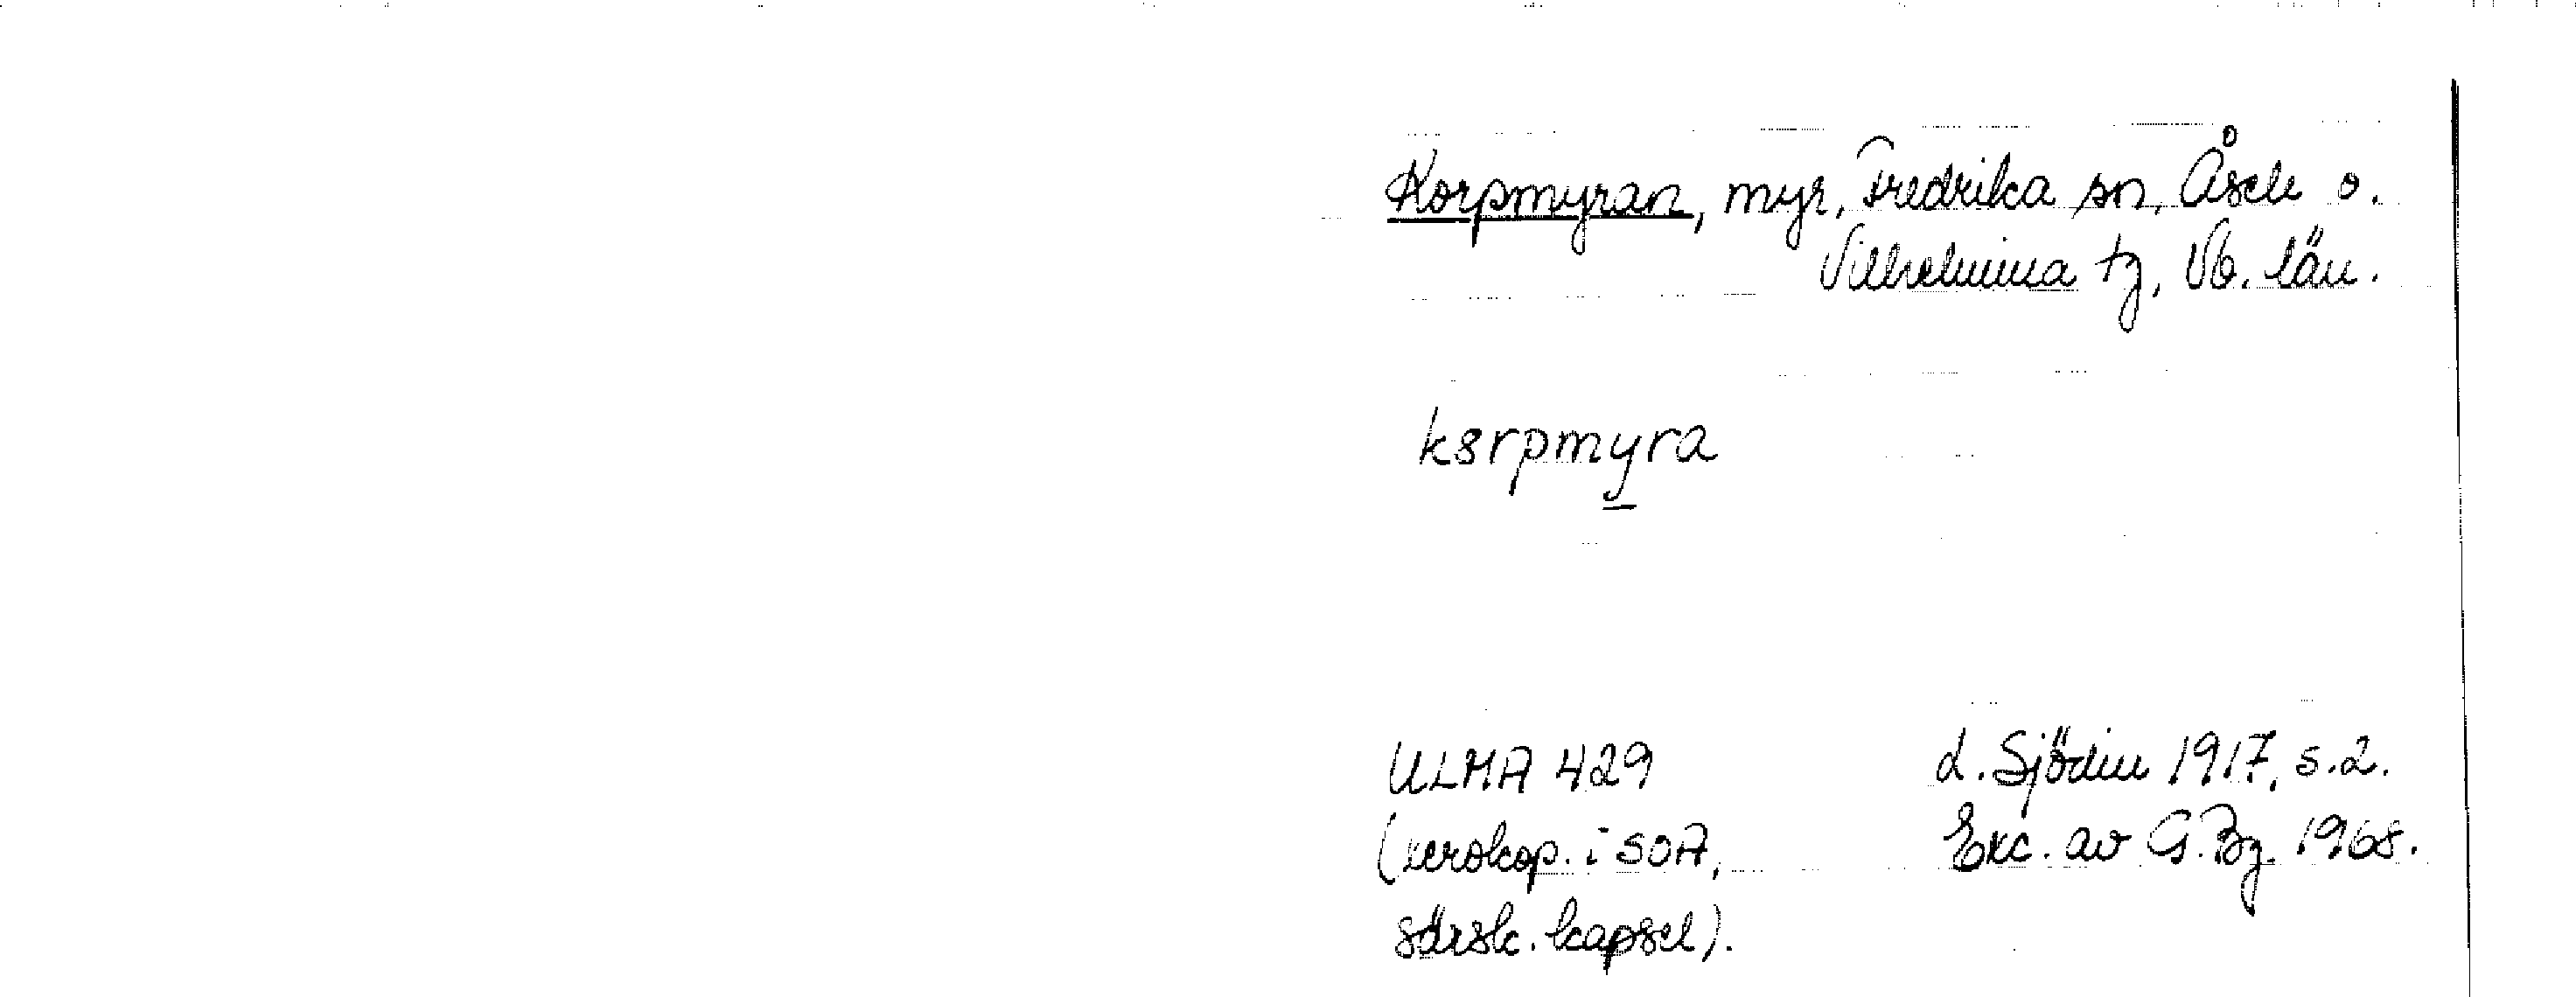 Korpmyran, myr, Fredrika sn, Åsele o.
Vilhelmina tg, Vb. län.
kɞrpmyra
ULMA 429
(xerokop. i SOA,
särsk. kapsel).
L. Sjödin 1917, s.2.
Exc. av G. Bg. 1968.